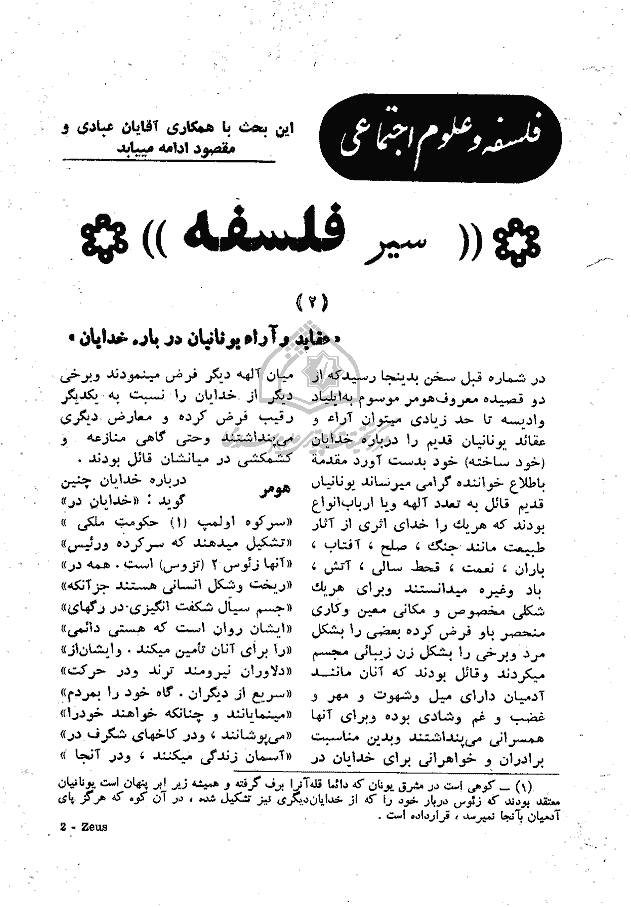 فلسفه و علوم اجتماعی
این بحث با همکاری آقایان عبادی و
مقصود ادامه مییابد
(( سیر فلسفه ))
(۲)
«عقاید و آراء یونانیان در باره خدایان»
در شماره قبل سخن بدینجا رسیدکه از
دو قصیده معروف هومر موسوم به‌ایلیاد
وادیسه تا حد زیادی میتوان آراء و
عقائد یونانیان قدیم را درباره خدایان
(خود ساخته) خود بدست آورد مقدمة
باطلاع خواننده گرامی میرساند یونانیان
قدیم قائل به تعدد آلهه ویا ارباب‌انواع
بودند که هریك را خدای اثری از آثار
طبیعت مانند جنگ ، صلح ، آفتاب ،
باران ، نعمت ، قحط سالی ، آتش ،
باد وغیره میدانستند وبرای هریك
شکلی مخصوص و مکانی معین وکاری
منحصر باو فرض کرده بعضی را بشکل
مرد وبرخی را بشکل زن زیبائی مجسم
میکردند وقائل بودند که آنان مانند
آدمیان دارای میل وشهوت و مهر و
غضب و غم وشادی بوده وبرای آنها
همسرانی می‌پنداشتند وبدین مناسبت
برادران و خواهرانی برای خدایان در
میان آلهه دیگر فرض مینمودند وبرخی
دیگر از خدایان را نسبت به یکدیگر
رقیب فرض کرده و معارض دیگری
می‌پنداشتند وحتی گاهی منازعه و
کشمکشی در میانشان قائل بودند .
هومر درباره خدایان چنین
گوید : «خدایان در»
«سرکوه اولمپ (۱) حکومت ملکی »
«تشکیل میدهند که سرکرده ورئیس»
«آنها زئوس ۲ (تزوس) است . همه در»
«ریخت وشکل انسانی هستند جزآنکه»
«جسم سیال شگفت انگیزی در رگهای»
«ایشان روان است که هستی دائمی»
«را برای آنان تأمین میکند . وایشان‌از»
«دلاوران نیرومند ترند ودر حرکت»
«سریع از دیگران . گاه خود را بمردم»
«مینمایانند و چنانکه خواهند خودرا»
«می‌پوشانند ، ودر کاخهای شگرف در»
«آسمان زندگی میکنند ، ودر آنجا »
(۱) ــ کوهی است در مشرق یونان که دائما قله‌آنرا برف گرفته و همیشه زیر ابر پنهان است یونانیان
معتقد بودند که زئوس دربار خود را که از خدایان‌دیگری نیز تشکیل شده ، در آن کوه که هرگز پای
آدمیان بآنجا نمیرسد ، قرارداده است .
2 - Zeus